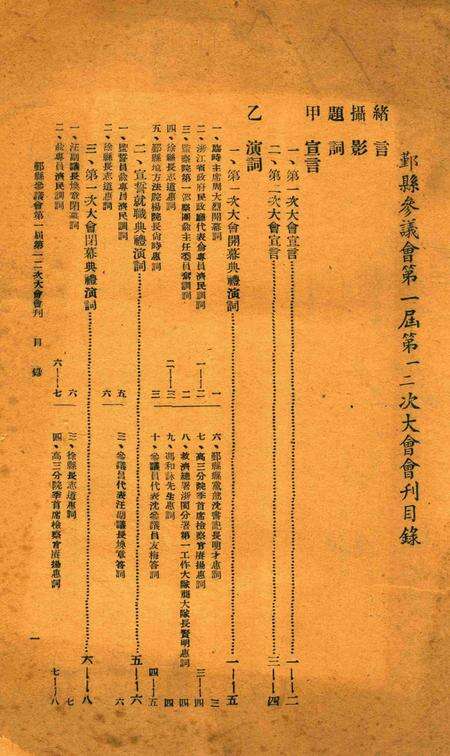 鄞縣參議會第一屆第一二次大會會刊目錄
緒言
攝影
題詞
甲 宣言
一、第一次大會宣言 一——二
二、第二次大會宣言 三——四
乙 演詞
一、第一次大會開幕典禮演詞 一——五
一、臨時主席周大烈開幕詞 一
二、浙江省政府民政廳代表俞專員濟民訓詞 一——二
三、監察院第一巡察團主任委員訓詞 二
四、徐縣長志道惠詞 二——三
五、鄞縣地方法院楊院長尙時惠詞 三
六、鄞縣縣黨部沈書記長明才惠詞 三
七、高三分院季首席檢察官賡揚惠詞 三——四
八、救濟總署浙閩分署第一工作大隊大隊長賢明惠詞 四
九、馮和詠先生惠詞 四
十、參議員代表沈參議員友梅答詞 四——五
二、宣誓就職典禮演詞 五——六
一、監誓員俞專員濟民訓詞 五
二、徐縣長志道惠詞 六
三、參議員代表汪副議長煥章答詞 六
三、第一次大會閉幕典禮演詞 六——八
一、汪副議長煥章閉幕詞 六
二、俞專員濟民訓詞 六——七
三、徐縣長志道惠詞 七
四、高三分院季首席檢察官賡揚惠詞 七——八
鄞縣參議會第一屆第一二次大會會刊 目錄 一